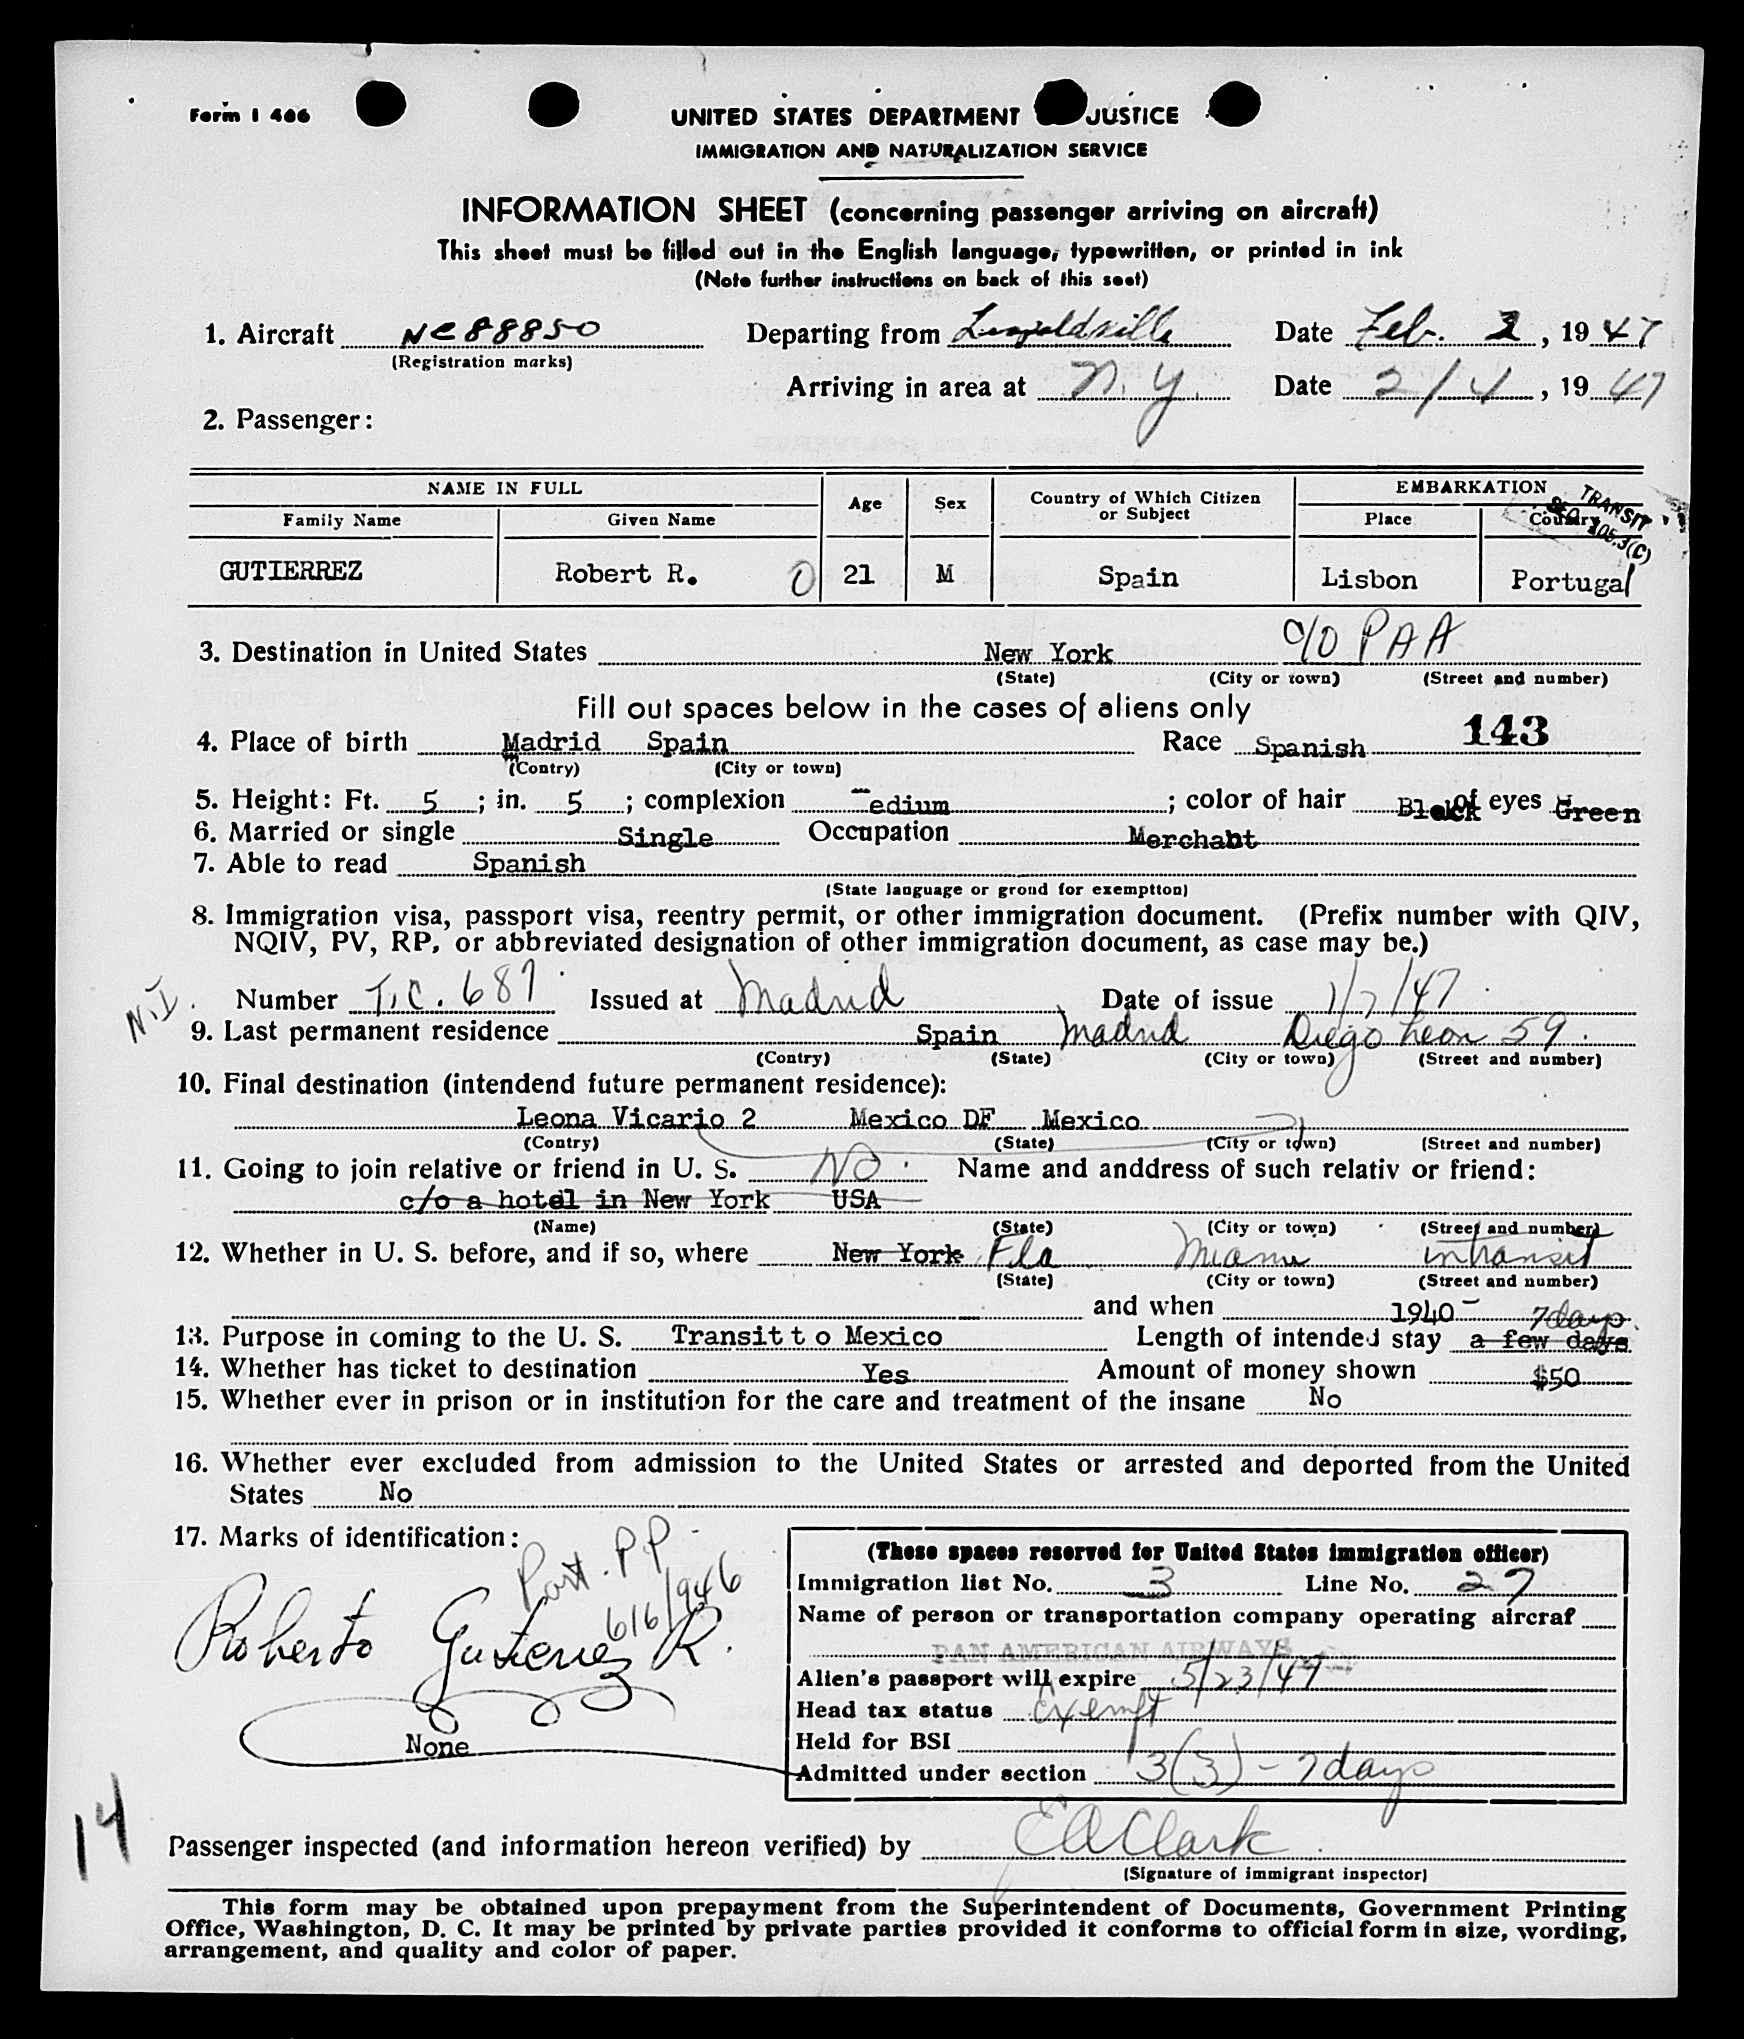 Form I 466
UNITED STATES DEPARTMENT JUSTICE
IMMIGRATION AND NATURALIZATION SERVICE
INFORMATION SHEET (concerning passenger arriving on aircraft)
This sheet must be filled out in the English language, typewritten, or printed in ink
(Note further instructions on back of this seet)
1. Aircraft NC88850 Departing from Leopoldville Date Feb. 2, 1947
(Registration marks)
Arriving in area at N.Y. Date 2/4, 1947
2. Passenger:
NAME IN FULL Age Sex Country of Which Citizen or Subject EMBARKATION
Family Name Given Name Place Country
TRANSIT
SEC. 105.3(C)
GUTIERREZ Robert R. O 21 M Spain Lisbon Portugal
3. Destination in United States New York c/o PAA
(State) (City or town) (Street and number)
Fill out spaces below in the cases of aliens only
4. Place of birth Madrid Spain Race Spanish 143
(Contry) (City or town)
5. Height: Ft. 5; in. 5; complexion edium; color of hair Black of eyes Green
6. Married or single Single Occupation Merchant
7. Able to read Spanish
(State language or grond for exemption)
8. Immigration visa, passport visa, reentry permit, or other immigration document. (Prefix number with QIV,
NQIV, PV, RP, or abbreviated designation of other immigration document, as case may be.)
N.I. Number T.C. 687 Issued at Madrid Date of issue 1/7/47
9. Last permanent residence Spain Madrid Diego Leon 59.
(Contry) (State) (City or town) (Street and number)
10. Final destination (intendend future permanent residence):
Leona Vicario 2 Mexico DF Mexico
(Contry) (State) (City or town) (Street and number)
11. Going to join relative or friend in U. S. NO. Name and anddress of such relativ or friend:
c/o a hotel in New York USA
(Name) (State) (City or town) (Street and number)
12. Whether in U. S. before, and if so, where New York Fla Miami in transit
(State) (City or town) (Street and number)
and when 1940 - 7 days.
13. Purpose in coming to the U. S. Transit t o Mexico Length of intended stay a few days
14. Whether has ticket to destination Yes Amount of money shown $50
15. Whether ever in prison or in institution for the care and treatment of the insane No
16. Whether ever excluded from admission to the United States or arrested and deported from the United
States No
17. Marks of identification:
Port. P.P.
6/6/946
Roberto Gutierrez R.
None
(These spaces reserved for United States immigration officer)
Immigration list No. 3 Line No. 27
Name of person or transportation company operating aircraf
PAN AMERICAN AIRWAYS
Alien's passport will expire 5/23/47
Head tax status Exempt
Held for BSI
Admitted under section 3(3) - 7 days
14
Passenger inspected (and information hereon verified) by E A Clark
(Signature of immigrant inspector)
This form may be obtained upon prepayment from the Superintendent of Documents, Government Printing
Office, Washington, D. C. It may be printed by private parties provided it conforms to official form in size, wording,
arrangement, and quality and color of paper.